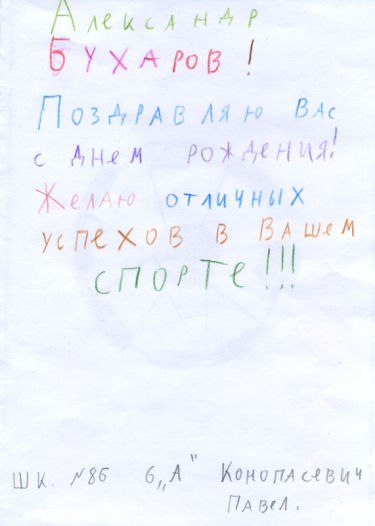 Александр
Бухаров!
Поздравляю Вас
с днем рождения!
Желаю отличных
успехов в Вашем
спорте!!!
шк. №86 6„А" Конопасевич
Павел.